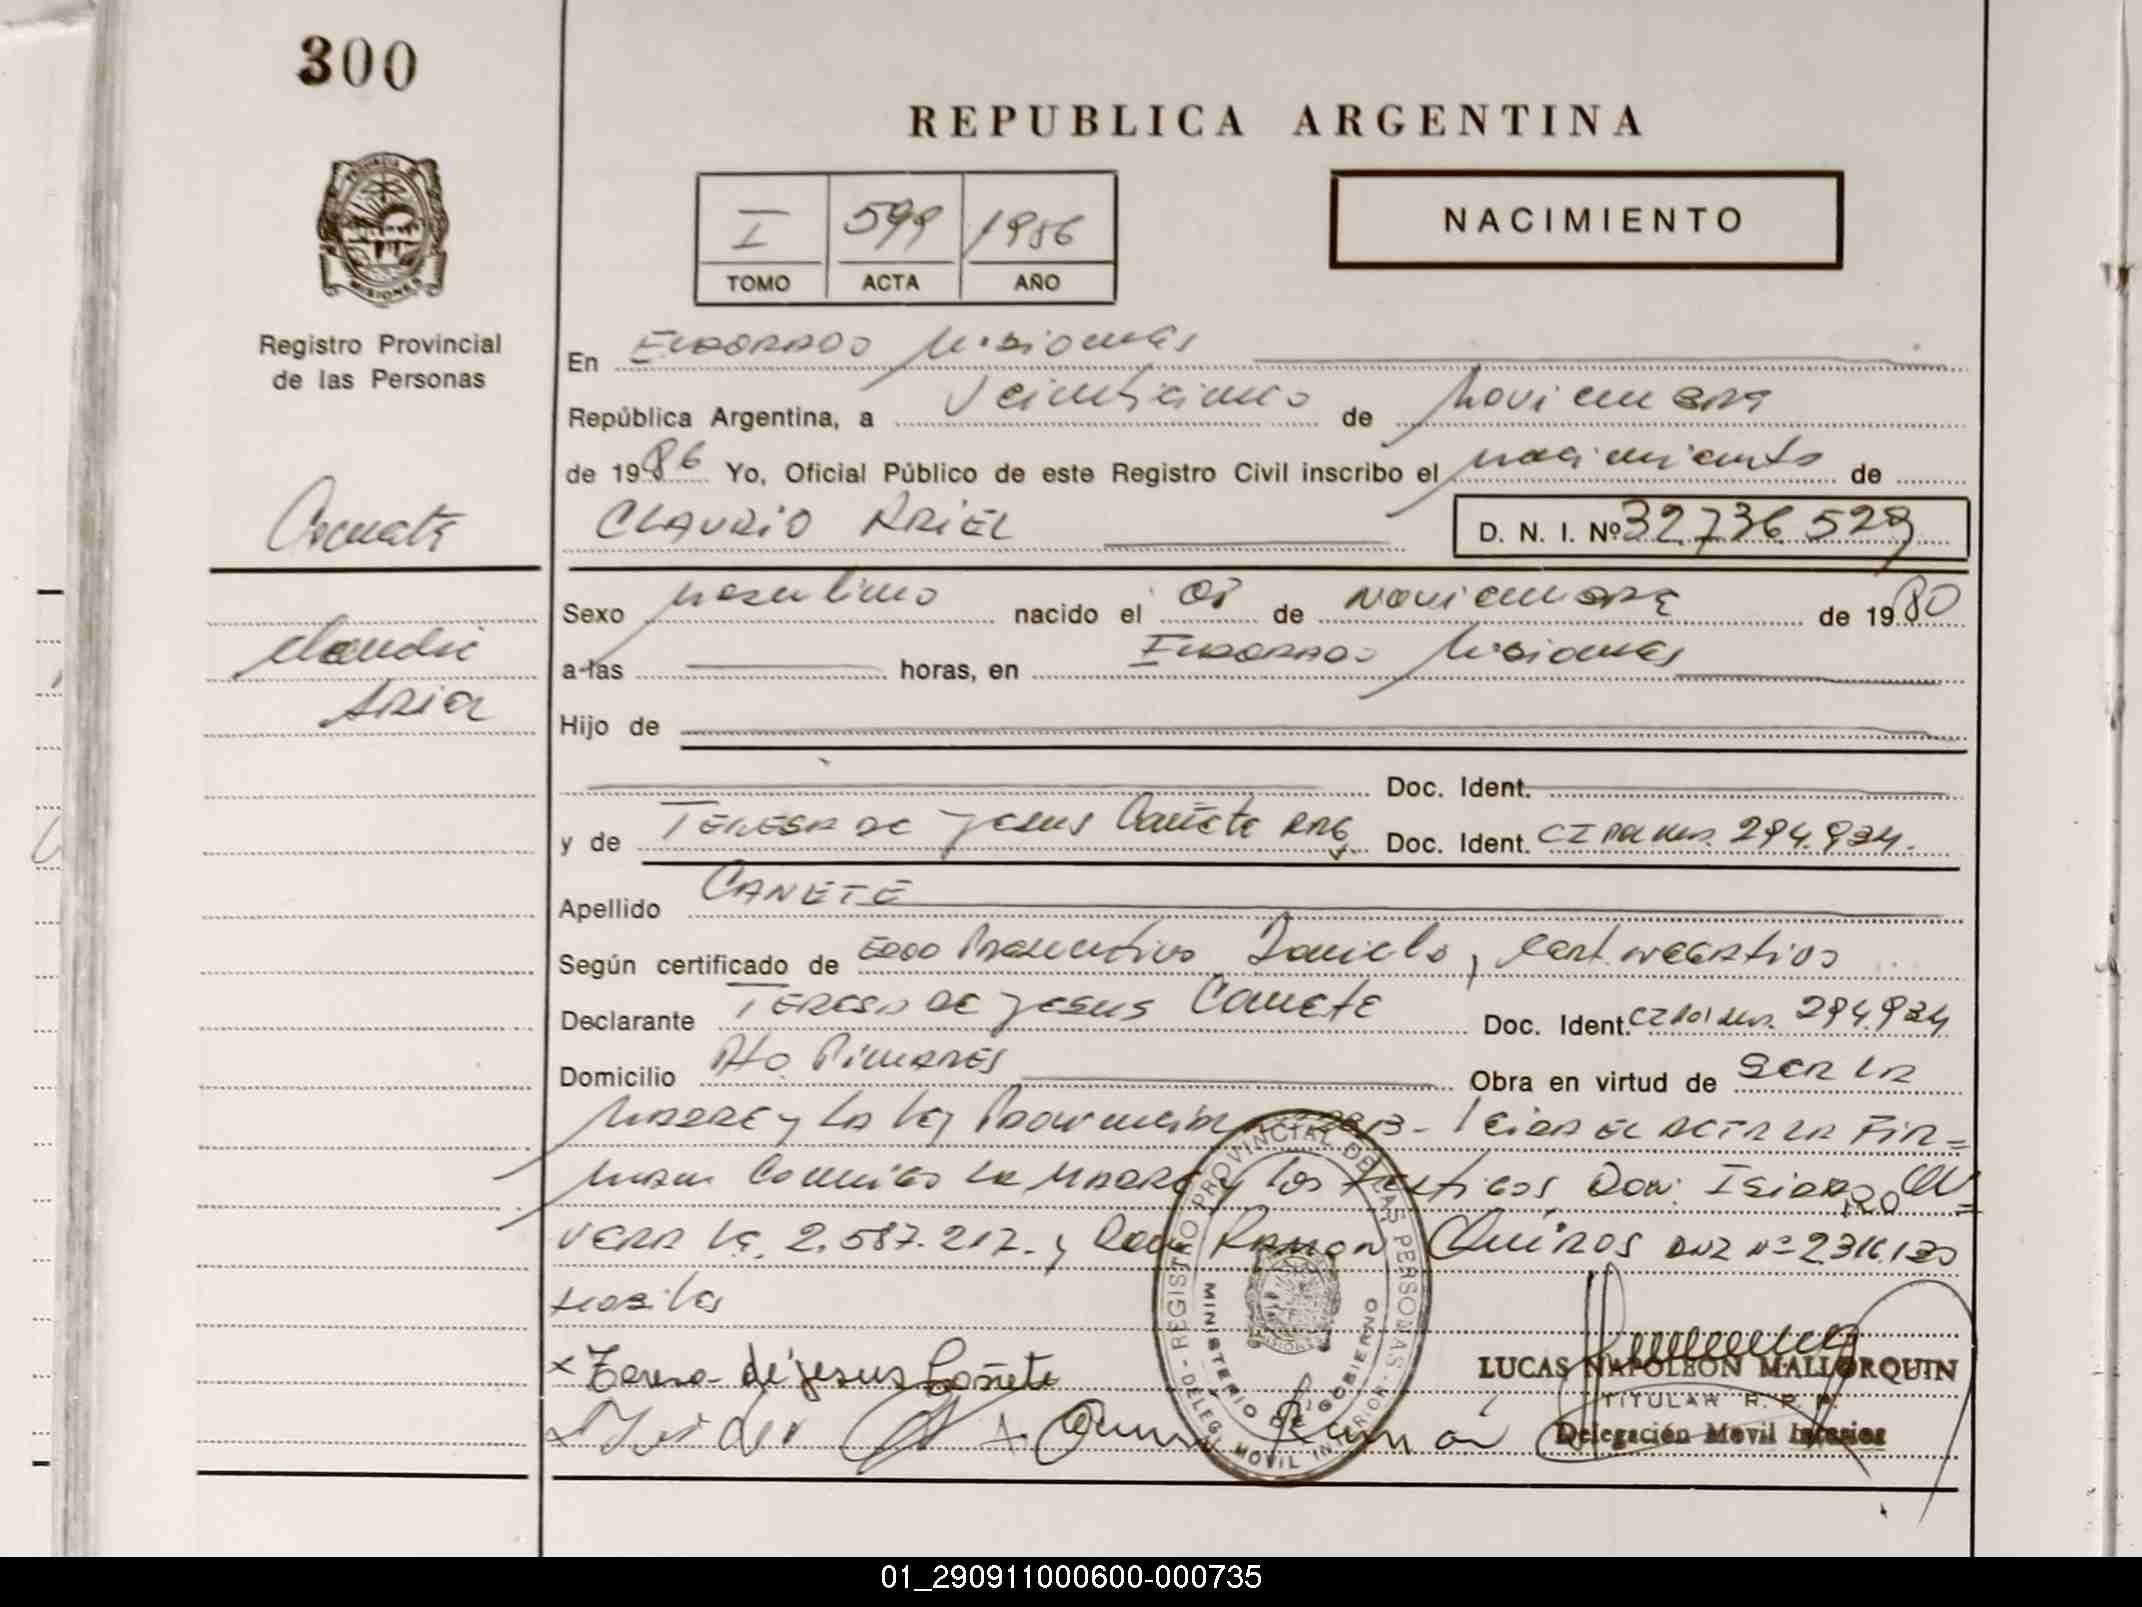 300
REPUBLICA ARGENTINA
I 599 1986
TOMO ACTA AÑO
NACIMIENTO
PROVINCIA DE
MISIONES
Registro Provincial
de las Personas
En ELDORADO Misiones
República Argentina, a Veinticinco de Noviembre
de 1986 Yo, Oficial Público de este Registro Civil inscribo el nacimiento de
CLAUDIO ARIEL D. N. I. Nº 32.736.529
Cañete
Claudio
Ariel
Sexo Masculino nacido el 08 de Noviembre de 1980
a las horas, en ELDORADO Misiones
Hijo de
Doc. Ident.
y de TERESA DE JESUS Cañete ARG Doc. Ident. CI Pol Mis. 294.934.
Apellido CAÑETE
Según certificado de Edad Presuntiva Daniels, Cert. negativos
Declarante TERESA DE JESUS Cañete Doc. Ident. CI Pol Mis. 294.934
Domicilio Pto Pinares Obra en virtud de SER LA
MADRE y La Ley Provincial Leida el ACTA LA FIR=
man Conmigo la MADRE y los Testigos Don: Isidro OLI=
VERA LE. 2.587.217. y Don Ramon Quiros DNI Nº
Testigos
x Teresa de Jesus Cañete
x Isidro x Ramon
REGISTRO PROVINCIAL DE LAS PERSONAS - DELEG. MOVIL INTERIOR -
MINISTERIO DE GOBIERNO
LUCAS NAPOLEON MALLORQUIN
TITULAR R. P. P.
Delegación Movil Interior
01_290911000600-000735